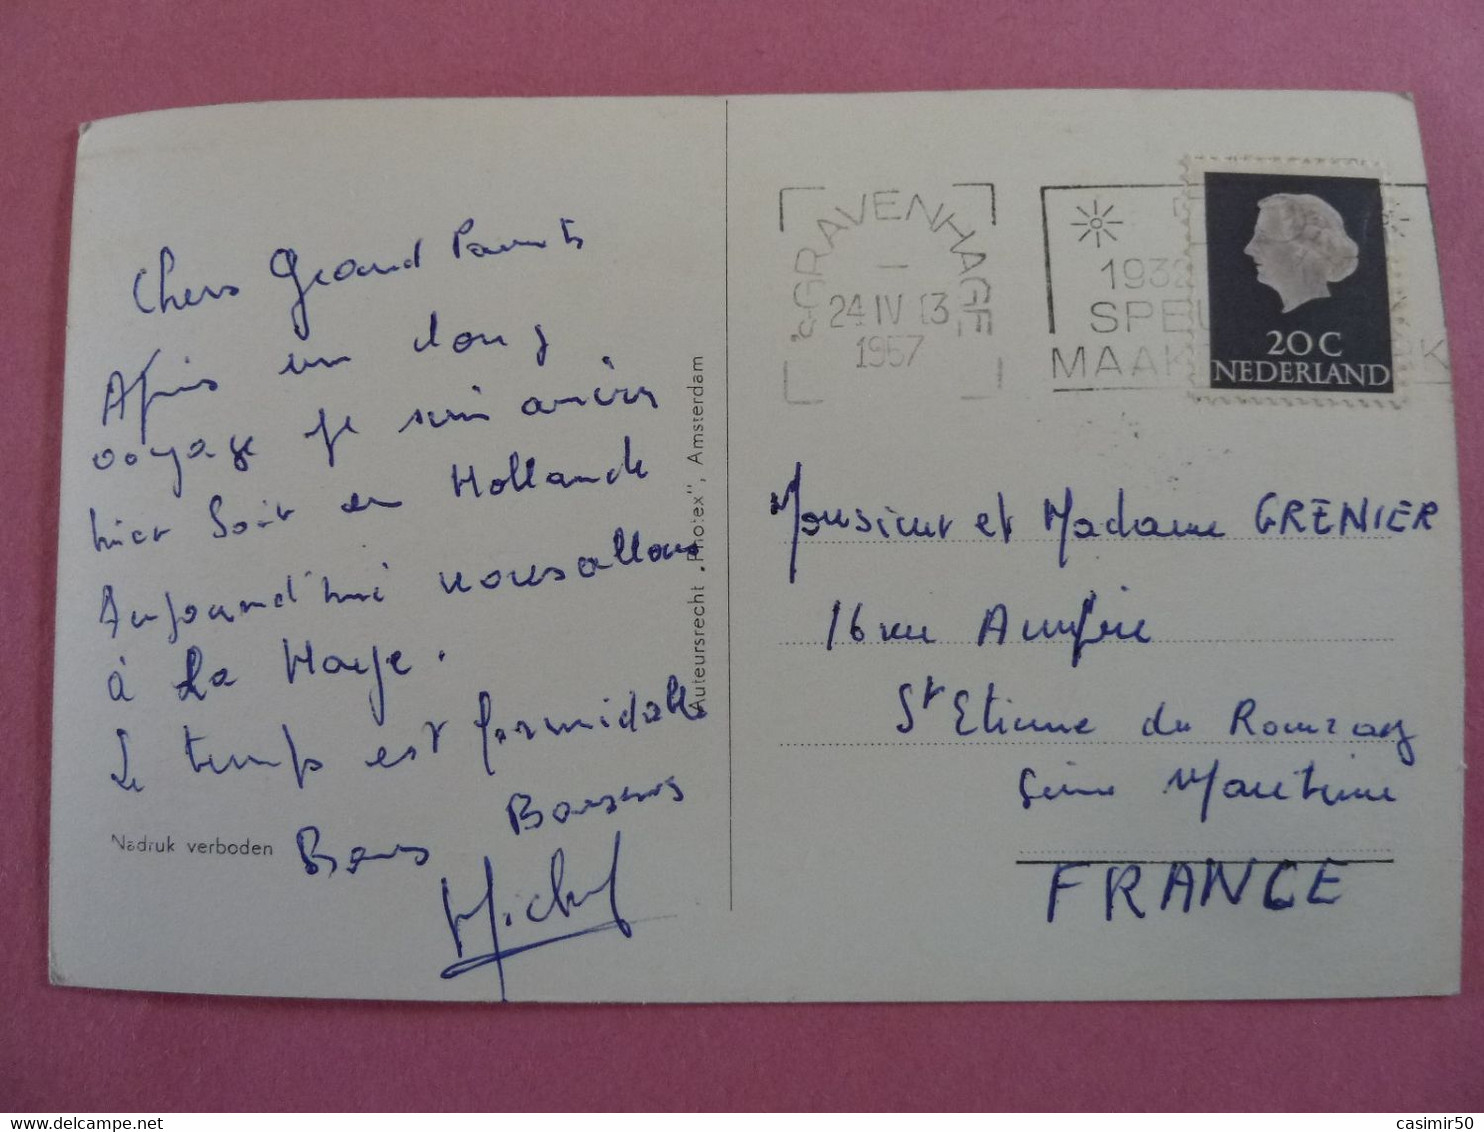 Chers Grand Parents
Après un long
voyage je suis arrivés
hier soir en Hollande
Aujourd'hui nous allons
à La Haye.
Le temps est formidable
Bons Baisers
Michel
Nadruk verboden
Auteursrecht „Photex", Amsterdam
's-GRAVENHAGE
24 IV 13
1967
1932
SPEU
MAAK
K
20 C
NEDERLAND
Monsieur et Madame GRENIER
16 rue Ampère
St Etienne du Rouvray
Seine Maritime
FRANCE
casimir50